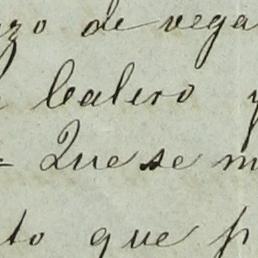 zo de vega
Calero y
= Que se m
to que p